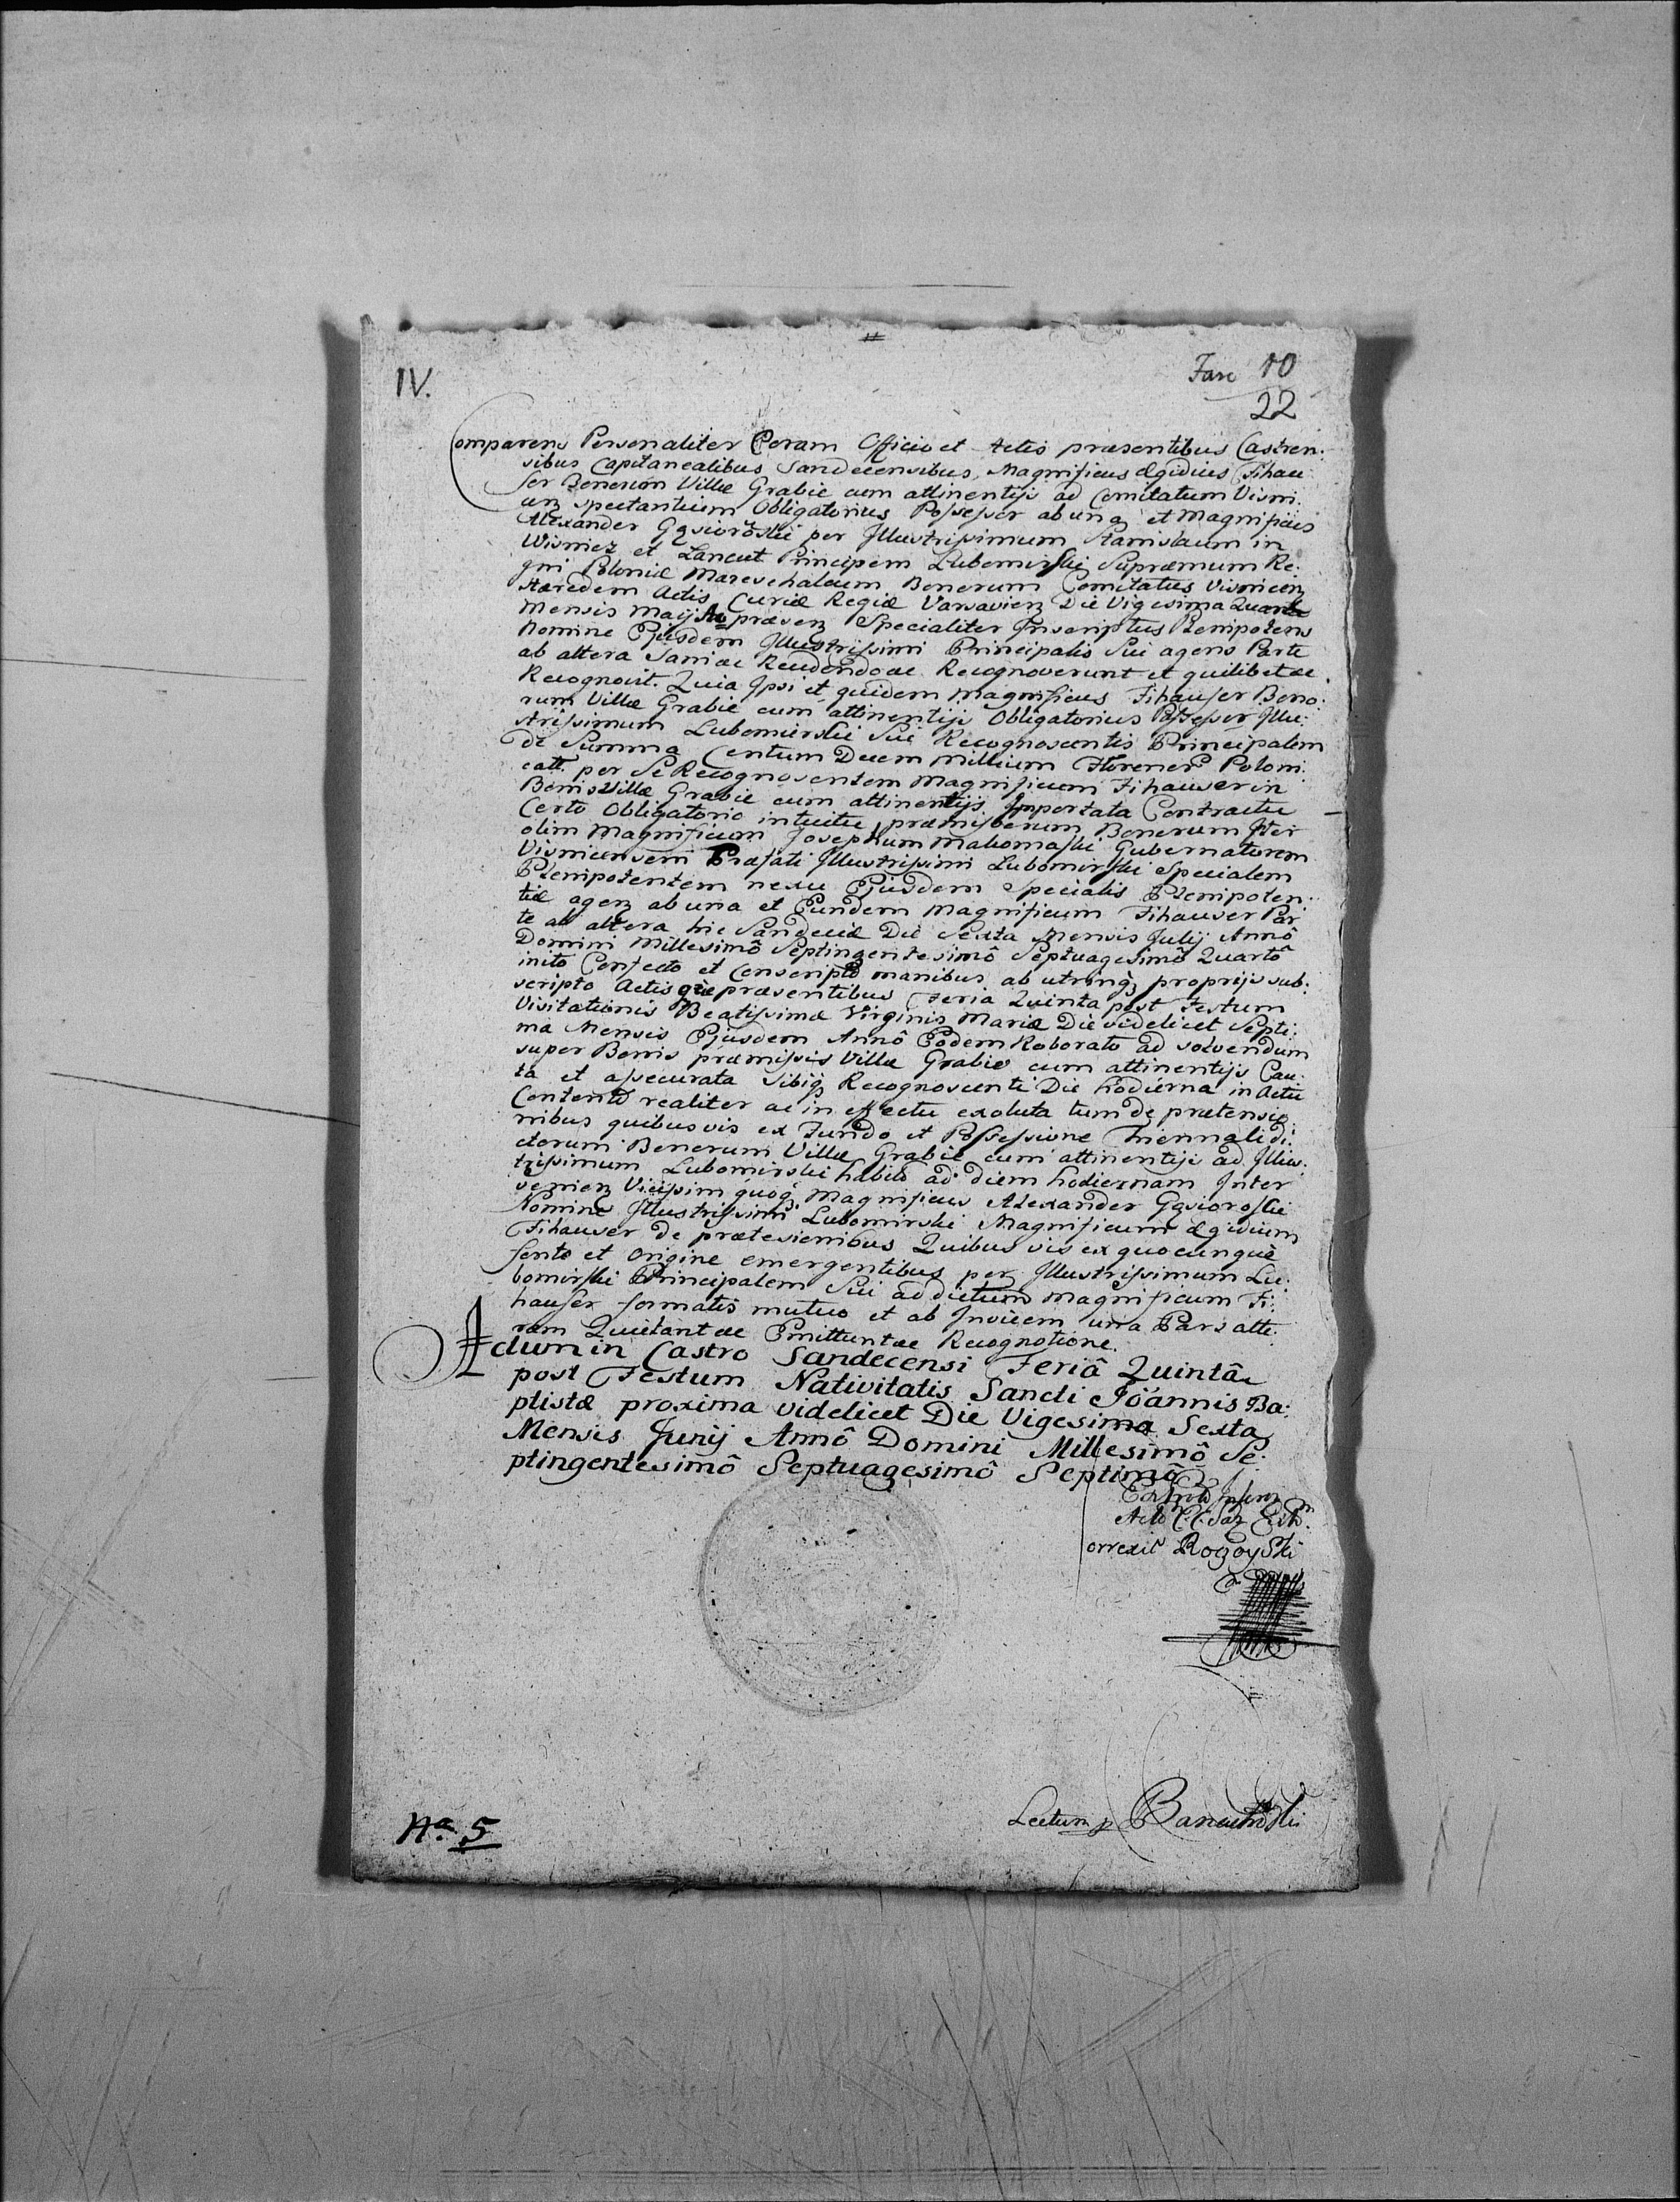 IV.
Fasc 10
22
Comparens Personaliter Coram Officio et Actis præsentibus Castren:
sibus Capitanealibus Sandecensibus, Magnificus Ægidius Fihau
ser Bonorum Villæ Grabie cum attinentijs ad Comitatum Visni:
cen spectantium Obligatorius Possessor ab una et Magnificus
Alexander Gąsiorowski per Illustrissimum Stanislaum in
Wisnicz et Lancut Principem Lubomirski Supræmum Re:
gni Poloniæ Mareschalcum Bonorum Comitatus Visnicen
Hæredem Actis Curiæ Regiæ Varsavien Die Vigesima Quarta
Mensis Maij præsen Specialiter Inscriptus Plenipotens
Nomine Ejusdem Illustrissimi Principalis Sui agens Parte
ab altera Sani ac Recognoverunt et quilibet ac
Recognovit. Quia Ipsi et quidem Magnificus Fihauser Bono:
rum Villæ Grabie cum attinentijs Obligatorius Possessor Illu:
strissimum Lubomirski Sui Recognoscentis Principalem
de Summa Centum Decem Millium Florenor Poloni:
call per Se Recognoscentem Magnificum Fihauser in
Bonis Villæ Grabie cum attinentijs Importata Contractu
Certo Obligatorio intuitu præmissorum Bonorum Iter
olim Magnificum Josephum Makomaski Gubernatorem
Visnicensem Præfati Illustrissimi Lubomirski Specialem
Plenipotentem nexu Ejusdem Specialis Plenipoten:
tiæ agen ab una et Eundem Magnificum Fihauser Par
te ab altera hic Sandeciæ Die Sexta Mensis Julij Annô
Domini Millesimô Septingentesimô Septuagesimô Quartô
inito Confecto et Conscripto manibus ab utrinq proprijs sub:
scripto Actis que præsentibus Feria Quinta post Festum
Visitationis Beatissimæ Virginis Mariæ Die videlicet Septi:
ma Mensis Ejusdem Annô Eodem Roborato ad solvendum
super Bonis præmissis Villæ Grabie cum attinentijs Cau:
ta et assecurata Sibiq Recognoscenti Die hodierna in Actu
Contento realiter ac in effectu exoluta tum de prætensio
nibus quibusvis ex Fundo et Possessione Triennali di:
ctorum Bonorum Villæ Grabie cum attinentijs ad Illus:
trissimum Lubomirski habito ad diem hodiernam Inter
venien Vicissim quoq Magnificus Alexander Gąsioroski
Nomine Illustrissimi Lubomirski Magnificum Ægidium
Fihauser de prætesionibus Quibus vis ex quocunque
fonte et Origine emergentibus per Illustrissimum Lu:
bomirski Principalem Sui ad dictum Magnificum Fi:
hauser formatis mutuo et ab Invicem una Pars alte:
ram Quietant ac Emittunt ac Recognotione.
Actum in Castro Sandecensi Feriâ Quintâ
post Festum Nativitatis Sancti Joannis Ba:
ptistæ proxima videlicet Die Vigesima Sexta
Mensis Junij Annô Domini Millesimô Se:
ptingentesimô Septuagesimô Septimô
Correxit Rogoyski
Lectum p
No. 5